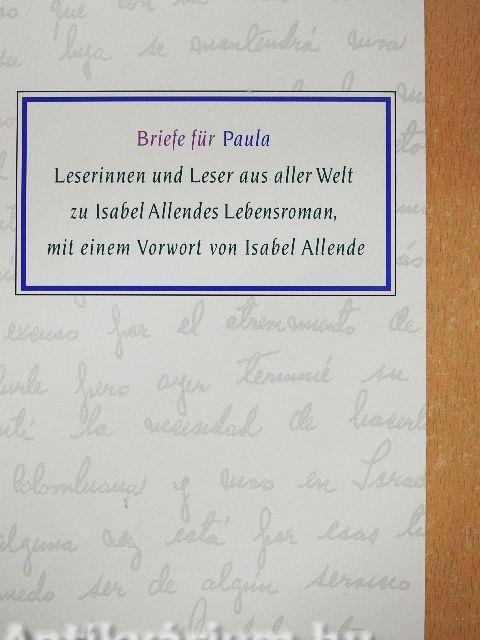 su hija se mantendrá una
Briefe für Paula
Leserinnen und Leser aus aller Welt
zu Isabel Allendes Lebensroman,
mit einem Vorwort von Isabel Allende
excuso por el atrevimiento de
pero ayer terminé su
la necesidad de hacerl
Colombiana y vivo en Israel
alguna vez está por esas
puedo ser de algún servicio
Antikvárium.hu